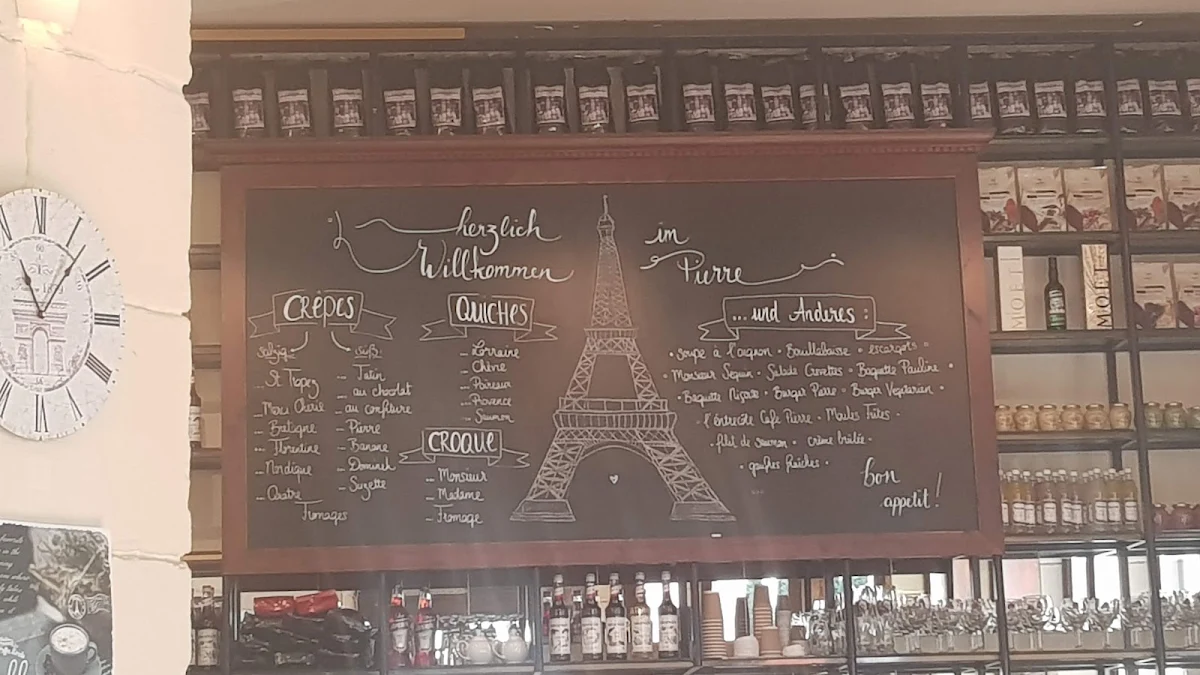 herzlich
Willkommen
im
Pierre
CRÊPES
salzig
St Tropez
Merci Cherie
Bretagne
Florentine
Nordique
Quatre
Fromages
süß:
Tatin
au chocolat
au confiture
Pierre
Banane
Suzette
QUICHES
Lorraine
Chèvre
Poireaux
Provence
Saumon
CROQUE
Monsieur
Madame
Fromage
... und Anderes :
• soupe à l'oignon • Bouillabaisse • escargots •
Monsieur Seguin • Salade Crevettes • Baguette Pauline •
• Baguette • Burger Pierre • Burger Vegetarian •
l'entrecôte Cafe Pierre • Moules Frites •
filet de saumon • crème brûlée •
• gaufres fraîches •
bon
appetit!
MOËT
MOËT